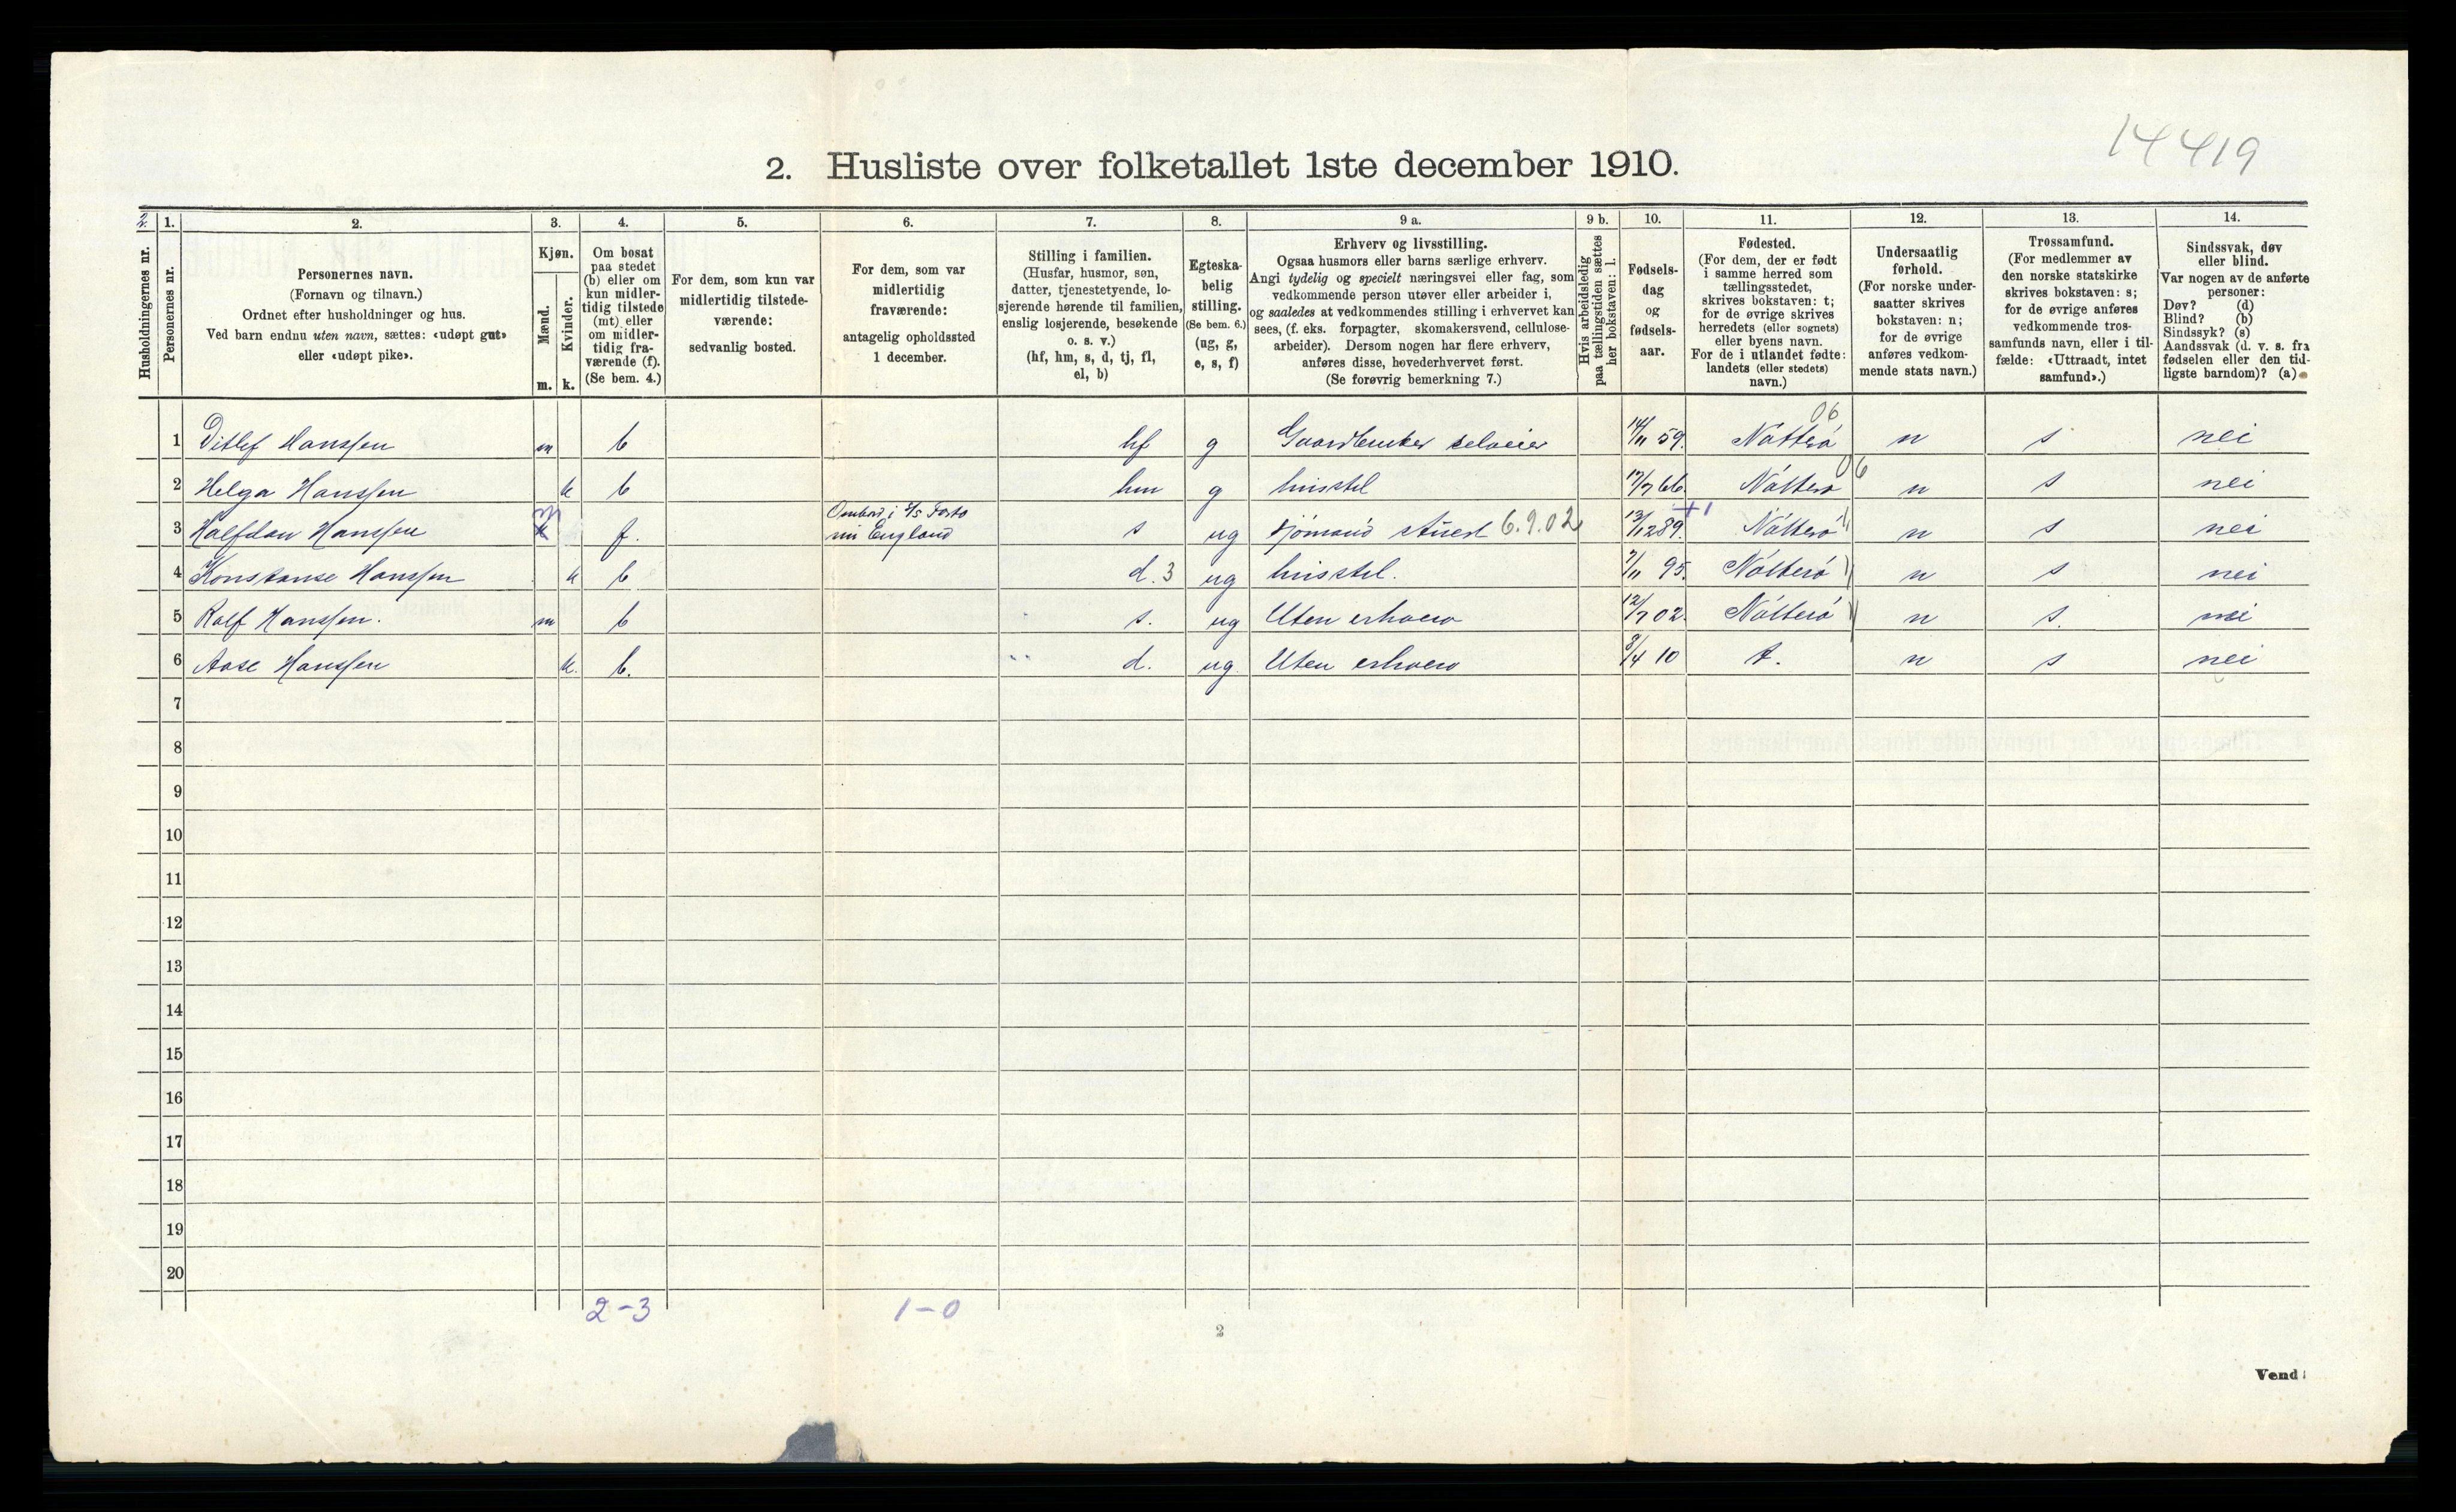 14419
2. Husliste over folketallet 1ste december 1910.
2.
Husholdningernes nr.
1.
Personernes nr.
2.
Personernes navn.
(Fornavn og tilnavn.)
Ordnet efter husholdninger og hus.
Ved barn endnu uten navn, sættes: «udøpt gut»
eller «udøpt pike».
3.
Kjøn.
Mænd.
Kvinder.
m. k.
4.
Om bosat
paa stedet
(b) eller om
kun midler-
tidig tilstede
(mt) eller
om midler-
tidig fra-
værende (f).
(Se bem. 4.)
5.
For dem, som kun var
midlertidig tilstede-
værende:
sedvanlig bosted.
6.
For dem, som var
midlertidig
fraværende:
antagelig opholdssted
1 december.
7.
Stilling i familien.
(Husfar, husmor, søn,
datter, tjenestetyende, lo-
sjerende hørende til familien,
enslig losjerende, besøkende
o. s. v.)
(hf, hm, s, d, tj, fl,
el, b)
8.
Egteska-
belig
stilling.
(Se bem. 6.)
(ug, g,
e, s, f)
9 a.
Erhverv og livsstilling.
Ogsaa husmors eller barns særlige erhverv.
Angi tydelig og specielt næringsvei eller fag, som
vedkommende person utøver eller arbeider i,
og saaledes at vedkommendes stilling i erhvervet kan
sees, (f. eks. forpagter, skomakersvend, cellulose-
arbeider). Dersom nogen har flere erhverv,
anføres disse, hovederhvervet først.
(Se forøvrig bemerkning 7.)
9 b.
Hvis arbeidsledig
paa tællingstiden sættes
her bokstaven: l.
10.
Fødsels-
dag
og
fødsels-
aar.
11.
Fødested.
(For dem, der er født
i samme herred som
tællingsstedet,
skrives bokstaven: t;
for de øvrige skrives
herredets (eller sognets)
eller byens navn.
For de i utlandet fødte:
landets (eller stedets)
navn.)
12.
Undersaatlig
forhold.
(For norske under-
saatter skrives
bokstaven: n;
for de øvrige
anføres vedkom-
mende stats navn.)
13.
Trossamfund.
(For medlemmer av
den norske statskirke
skrives bokstaven: s;
for de øvrige anføres
vedkommende tros-
samfunds navn, eller i til-
fælde: «Uttraadt, intet
samfund».)
14.
Sindssvak, døv
eller blind.
Var nogen av de anførte
personer:
Døv? (d)
Blind? (b)
Sindssyk? (s)
Aandssvak (d. v. s. fra
fødselen eller den tid-
ligste barndom)? (a)
06
1 Ditlef Hanssen m b hf g Gaardbruker selveier 14/11 59. Nötterö n s nei
06
2 Helga Hanssen k b hm g husstel 17/7 66. Nötterö n s nei
3 Halfdan Hanssen m f. Ombord i S/S England s ug sjömand 6.9.02 13/12 89. Nötterö n s nei
4 Konstanse Hanssen k b d. 3 ug husstel. 7/11 95. Nötterö n s nei
5 Ralf Hanssen. m b s. ug Uten erhverv 12/7 02. Nötterö n s. nei
6 Aase Hanssen k. b. d. ug. Uten erhverv 3/4 10 t. n s nei
7
8
9
10
11
12
13
14
15
16
17
18
19
20
2-3 1-0
2
Vend